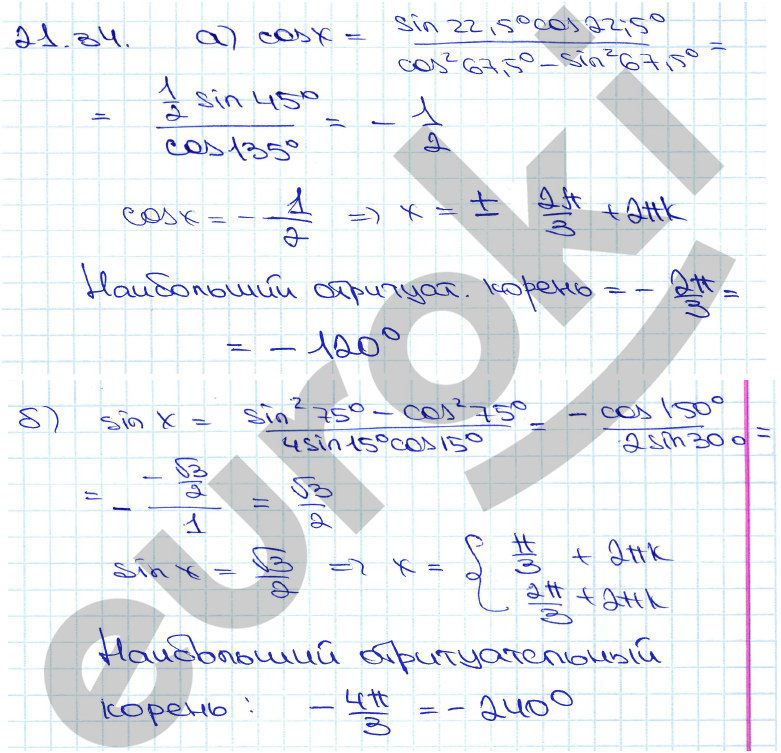 21.34. а) cosx = sin22,5°cos22,5° / cos²67,5° - sin²67,5° =
= 1/2 sin45° / cos135° = - 1/2
cosx = - 1/2 => x = ± 2π/3 + 2πk
Наибольший отрицат. корень = - 2π/3 =
= - 120°
б) sin x = sin²75° - cos²75° / 4sin15°cos15° = - cos150° / 2sin30° =
= - -√3/2 / 1 = √3/2
sin x = √3/2 => x = { π/3 + 2πk
2π/3 + 2πk
Наибольший отрицательный
корень: - 4π/3 = - 240°
euroki